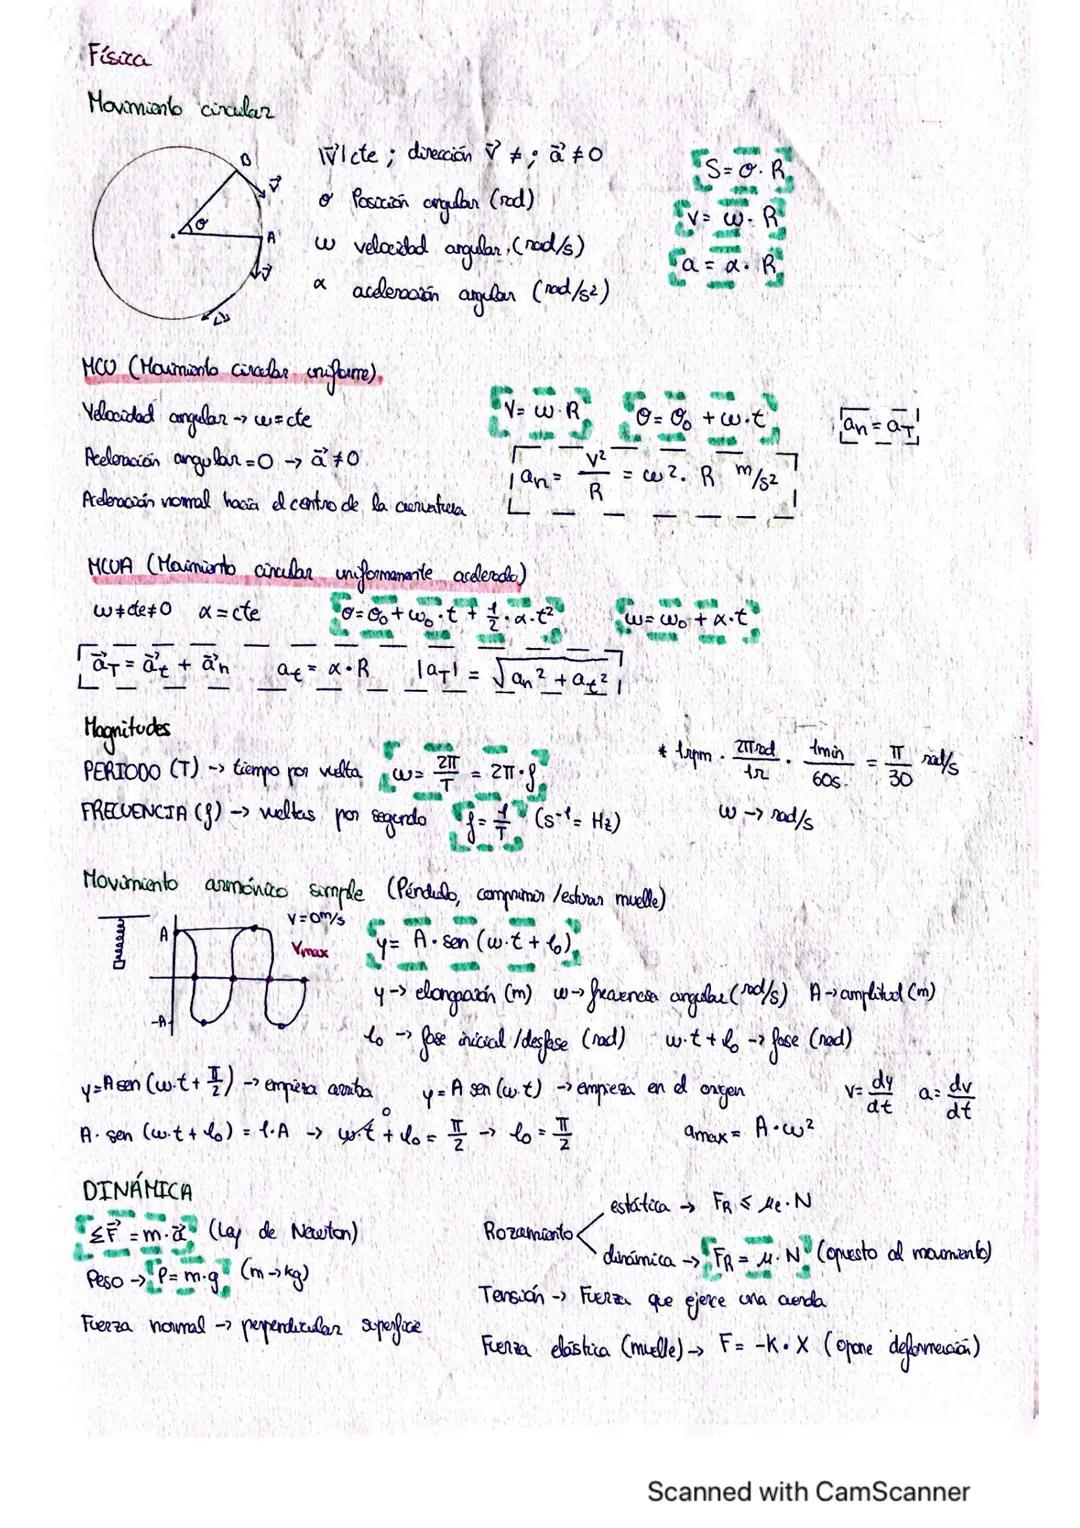 Física
Movimiento circular
|v⃗| cte ; dirección v⃗ ≠ ; a⃗ ≠ 0
S = σ · R
B
v⃗
σ Posición angular (rad)
σ
V = ω · R
A
ω velocidad angular (rad/s)
v⃗
a = α · R
α aceleración angular (rad/s²)
v⃗
MCU (Movimiento circular uniforme).
Velocidad angular → ω = cte
V = ω · R
σ = σ₀ + ω · t
an = aT
Aceleración angular = 0 → a⃗ ≠ 0
an = V²/R = ω² · R m/s²
Aceleración normal hacia el centro de la curvatura
MCUA (Movimiento circular uniformemente acelerado)
ω ≠ cte ≠ 0 α = cte
σ = σ₀ + ω₀ · t + 1/2 · α · t²
ω = ω₀ + α · t
a⃗T = a⃗t + a⃗n at = α · R |aT| = √an² + at²
Magnitudes
PERIODO (T) → tiempo por vuelta ω = 2π/T = 2π · f
* 1rpm · 2πrad/1r · 1min/60s. = π/30 rad/s
FRECUENCIA (f) → vueltas por segundo f = 1/T (s⁻¹ = Hz)
ω → rad/s
Movimiento armónico simple (Péndulo, comprimir / estirar muelle)
V = 0 m/s
A
Vmax
y = A · sen (ω · t + φ₀)
y → elongación (m) ω → frecuencia angular (rad/s) A → amplitud (m)
-A
φ₀ → fase inicial / desfase (rad) ω · t + φ₀ → fase (rad)
y = A sen (ω · t + π/2) → empieza arriba y = A sen (ω · t) → empieza en el origen
v = dy/dt a = dv/dt
A · sen (ω · t + φ₀) = 1 · A → ω · t 0 + φ₀ = π/2 → φ₀ = π/2
amax = A · ω²
DINÁMICA
Σ F⃗ = m · a⃗ (Ley de Newton)
Peso → P = m · g (m → kg)
Fuerza normal → perpendicular superficie
estática → FR ≤ μe · N
Rozamiento
dinámica → FR = μ · N (opuesto al movimiento)
Tensión → Fuerza que ejerce una cuerda
Fuerza elástica (muelle) → F = -K · X (opone deformación)
Scanned with CamScanner